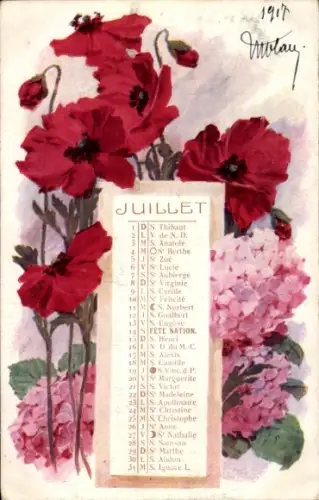 1917
JUILLET
1 D S. Thibaut
2 L V. de N. D.
3 M S. Anatole
4 M Ste Berthe
5 J Ste Zoé
6 V Ste Lucie
7 S Ste Aubierge
8 D Ste Virginie
9 L S. Cyrille
10 M Ste Félicité
11 M S. Norbert
12 J S. Gualbert
13 V S. Eugène
14 S FÊTE NATION.
15 D S. Henri
16 L N. D. du M.-C.
17 M S. Alexis
18 M S. Camille
19 J S. Vinc. d. P.
20 V Ste Marguerite
21 S S. Victor
22 D Ste Madeleine
23 L S. Apollinaire
24 M Ste Christine
25 M S. Christophe
26 J Ste Anne
27 V Ste Nathalie
28 S S. Samson
29 D Ste Marthe
30 L S. Abdon
31 M S. Ignace L.